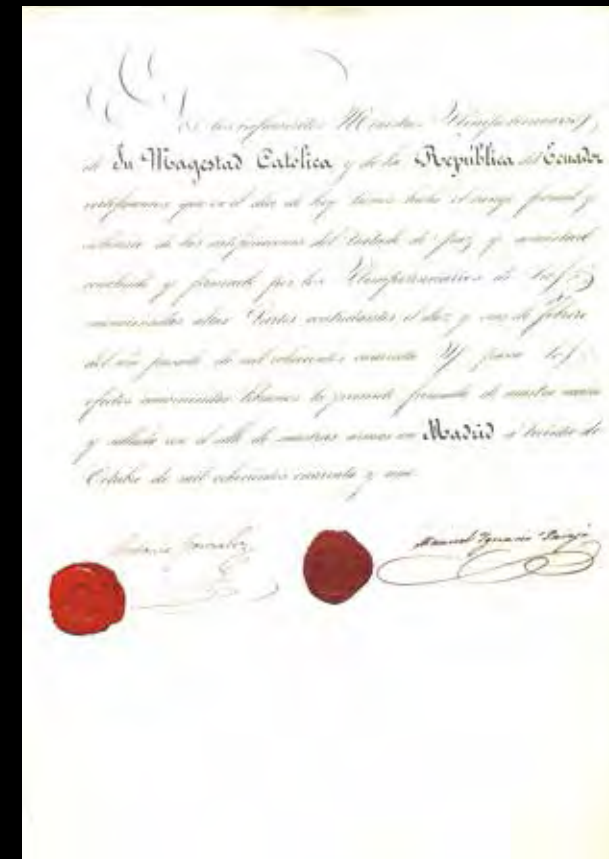 Los infrascritos Ministros Plenipotenciarios,
de Su Magestad Católica y de la República del Ecuador
certificamos que en el dia de hoy hemos hecho el cange formal y
de las ratificaciones del tratado de paz y amistad
concluido y firmado por los Plenipotenciarios de las
mencionadas altas Partes contratantes el diez y seis de febrero
del año pasado de mil ochocientos cuarenta. Y para los
efectos convenientes libramos la presente firmada de nuestra mano
y sellada con el sello de nuestras armas en Madrid a treinta de
Octubre de mil ochocientos cuarenta y uno.
Antonio Gonzalez
Manuel Ignacio Pareja